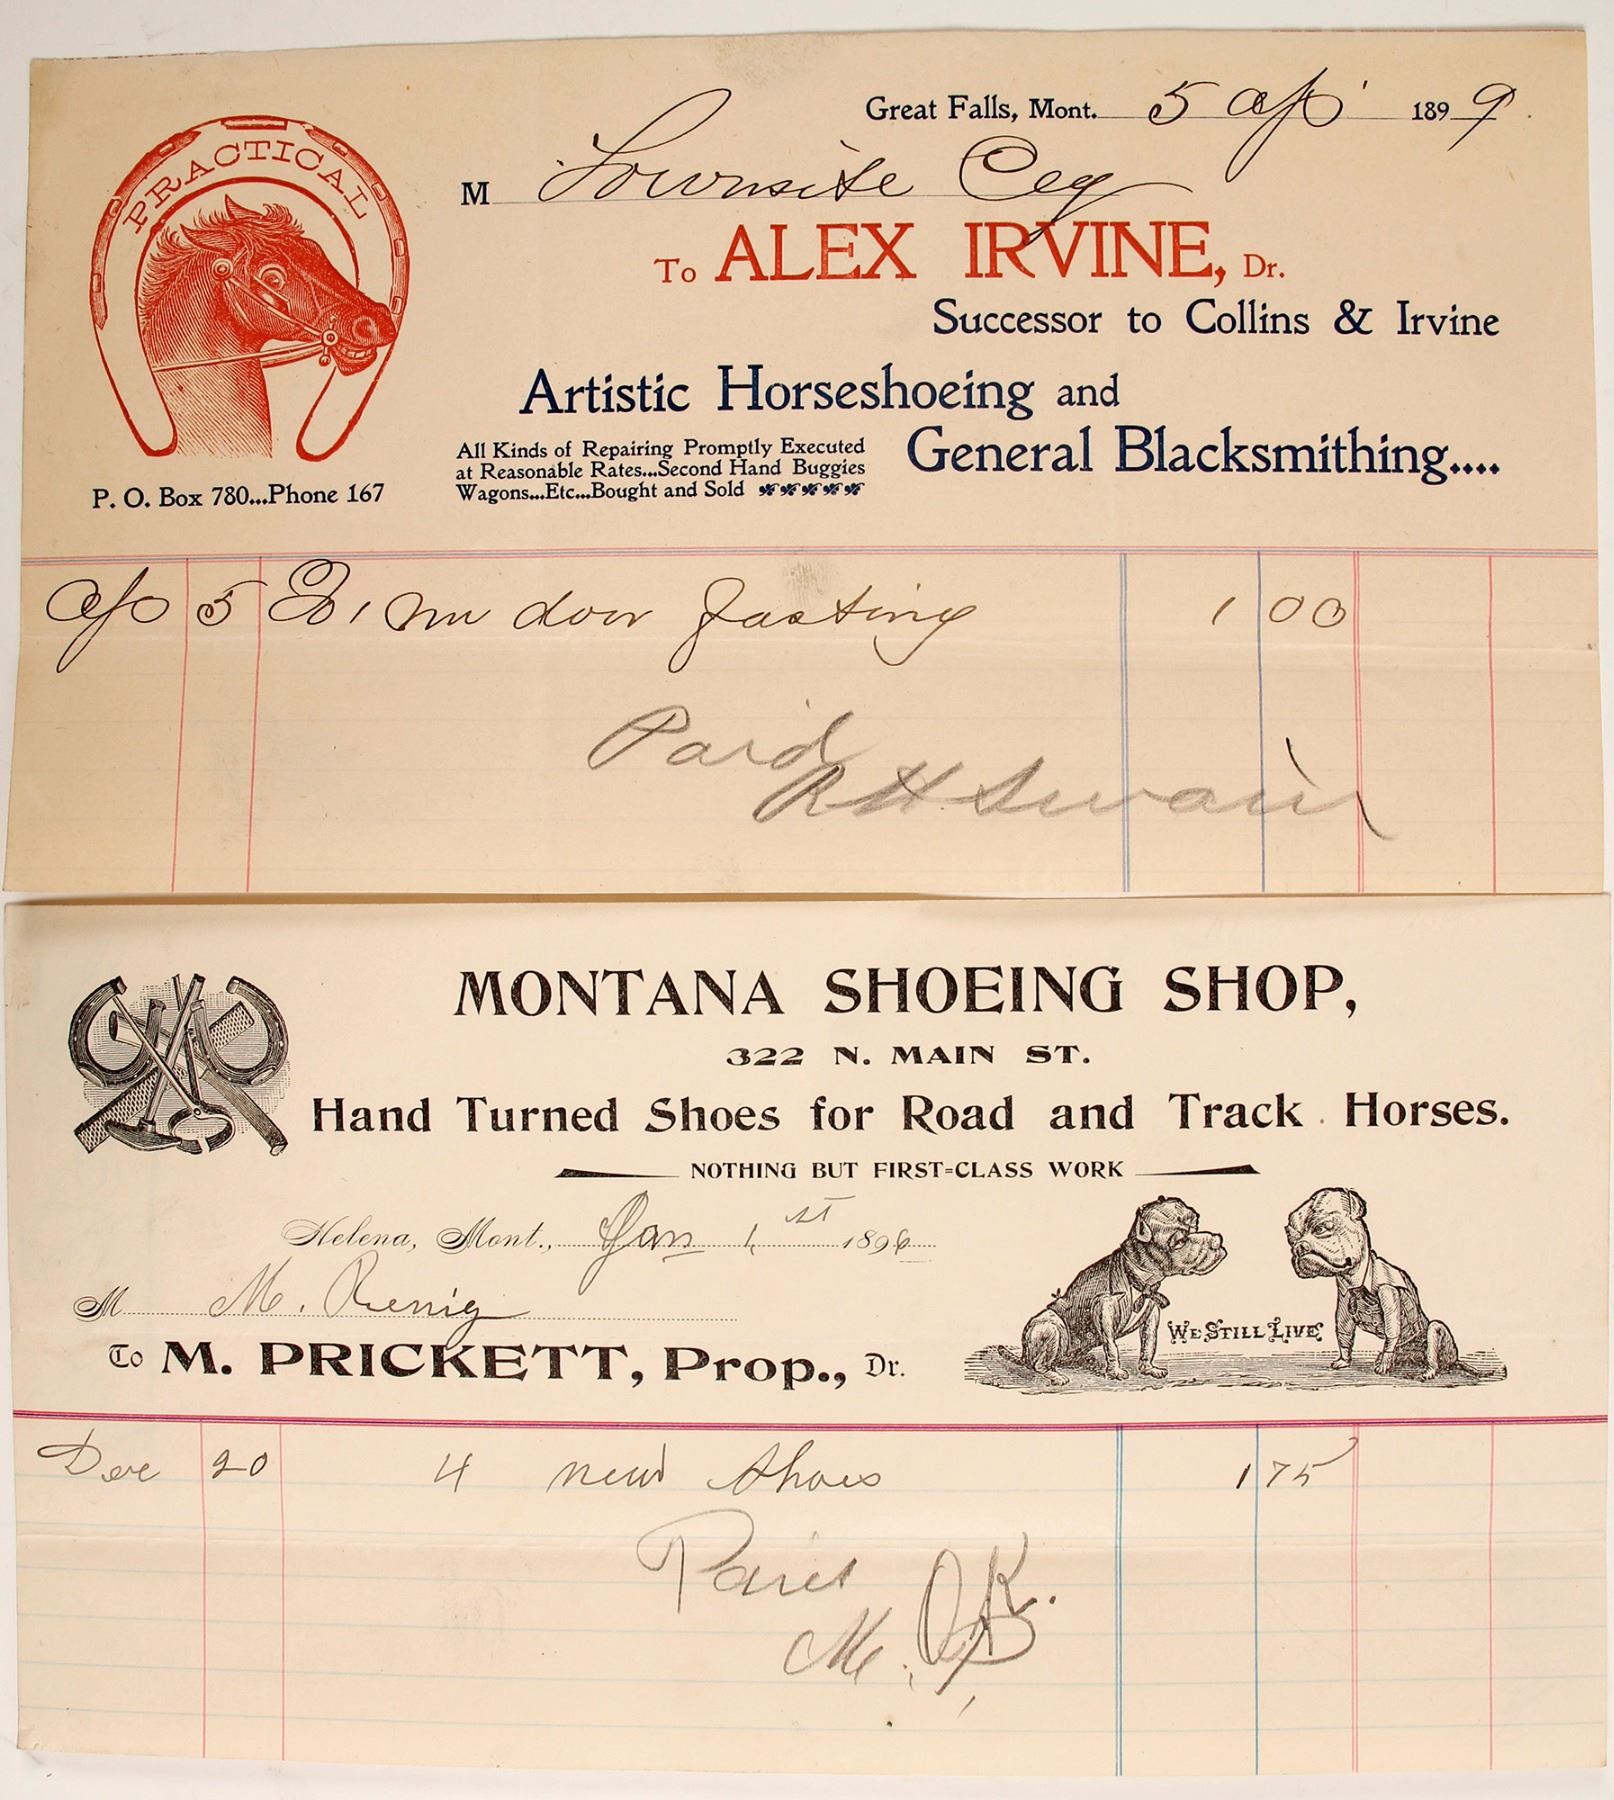 PRACTICAL
Great Falls, Mont. 5 Ap 1899
M Townsite Coy
To ALEX IRVINE, Dr.
Successor to Collins & Irvine
Artistic Horseshoeing and
General Blacksmithing....
All Kinds of Repairing Promptly Executed
at Reasonable Rates...Second Hand Buggies
Wagons...Etc...Bought and Sold
P. O. Box 780...Phone 167
Ap 5 To 1 door fasting 1 00
Paid
R H Swain
MONTANA SHOEING SHOP,
322 N. MAIN ST.
Hand Turned Shoes for Road and Track Horses.
NOTHING BUT FIRST=CLASS WORK
Helena, Mont., Jan 1st 1896
M M. Renig
To M. PRICKETT, Prop., Dr.
WE STILL LIVE
Dec 20 4 new shoes 1 75
Paid
M. P.